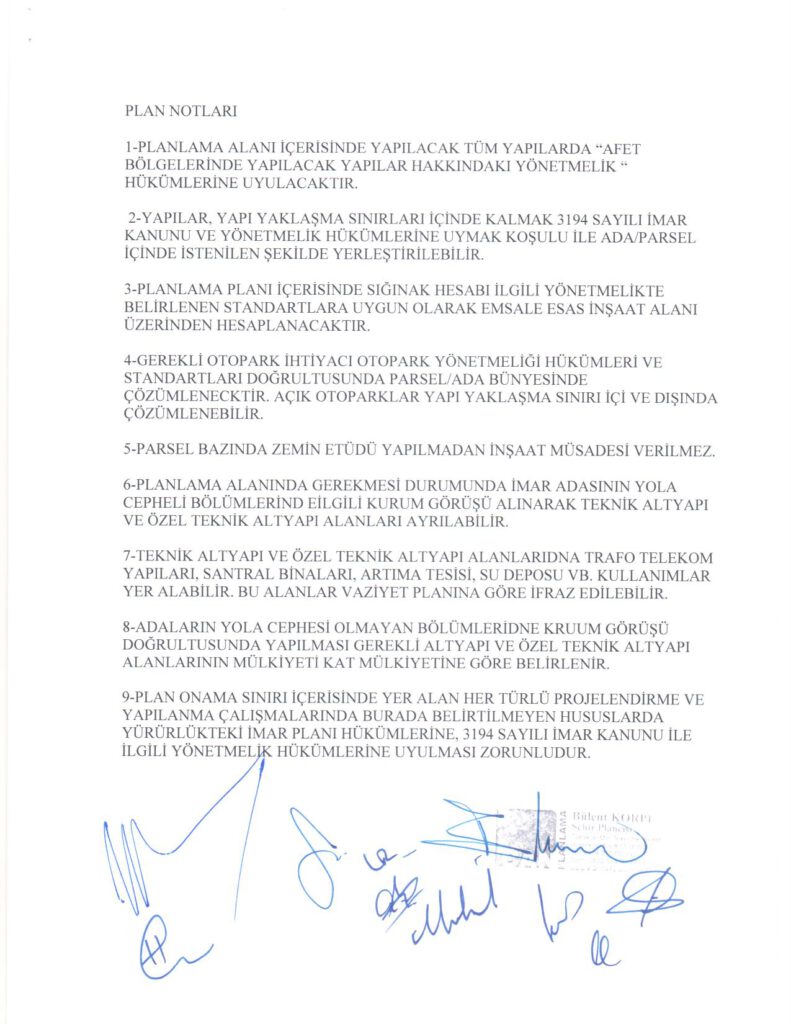 PLAN NOTLARI
1-PLANLAMA ALANI İÇERİSİNDE YAPILACAK TÜM YAPILARDA “AFET
BÖLGELERİNDE YAPILACAK YAPILAR HAKKINDAKI YÖNETMELİK “
HÜKÜMLERİNE UYULACAKTIR.
2-YAPILAR, YAPI YAKLAŞMA SINIRLARI İÇİNDE KALMAK 3194 SAYILI İMAR
KANUNU VE YÖNETMELİK HÜKÜMLERİNE UYMAK KOŞULU İLE ADA/PARSEL
İÇİNDE İSTENİLEN ŞEKİLDE YERLEŞTİRİLEBİLİR.
3-PLANLAMA PLANI İÇERİSİNDE SIĞINAK HESABI İLGİLİ YÖNETMELİKTE
BELİRLENEN STANDARTLARA UYGUN OLARAK EMSALE ESAS İNŞAAT ALANI
ÜZERİNDEN HESAPLANACAKTIR.
4-GEREKLİ OTOPARK İHTİYACI OTOPARK YÖNETMELİĞİ HÜKÜMLERİ VE
STANDARTLARI DOĞRULTUSUNDA PARSEL/ADA BÜNYESİNDE
ÇÖZÜMLENECKTİR. AÇIK OTOPARKLAR YAPI YAKLAŞMA SINIRI İÇİ VE DIŞINDA
ÇÖZÜMLENEBİLİR.
5-PARSEL BAZINDA ZEMİN ETÜDÜ YAPILMADAN İNŞAAT MÜSADESİ VERİLMEZ.
6-PLANLAMA ALANINDA GEREKMESİ DURUMUNDA İMAR ADASININ YOLA
CEPHELİ BÖLÜMLERİND EİLGİLİ KURUM GÖRÜŞÜ ALINARAK TEKNİK ALTYAPI
VE ÖZEL TEKNİK ALTYAPI ALANLARI AYRILABİLİR.
7-TEKNİK ALTYAPI VE ÖZEL TEKNİK ALTYAPI ALANLARIDNA TRAFO TELEKOM
YAPILARI, SANTRAL BİNALARI, ARTIMA TESİSİ, SU DEPOSU VB. KULLANIMLAR
YER ALABİLİR. BU ALANLAR VAZİYET PLANINA GÖRE İFRAZ EDİLEBİLİR.
8-ADALARIN YOLA CEPHESİ OLMAYAN BÖLÜMLERİDNE KRUUM GÖRÜŞÜ
DOĞRULTUSUNDA YAPILMASI GEREKLİ ALTYAPI VE ÖZEL TEKNİK ALTYAPI
ALANLARININ MÜLKİYETİ KAT MÜLKİYETİNE GÖRE BELİRLENİR.
9-PLAN ONAMA SINIRI İÇERİSİNDE YER ALAN HER TÜRLÜ PROJELENDİRME VE
YAPILANMA ÇALIŞMALARINDA BURADA BELİRTİLMEYEN HUSUSLARDA
YÜRÜRLÜKTEKİ İMAR PLANI HÜKÜMLERİNE, 3194 SAYILI İMAR KANUNU İLE
İLGİLİ YÖNETMELİK HÜKÜMLERİNE UYULMASI ZORUNLUDUR.
Bülent
Şehir